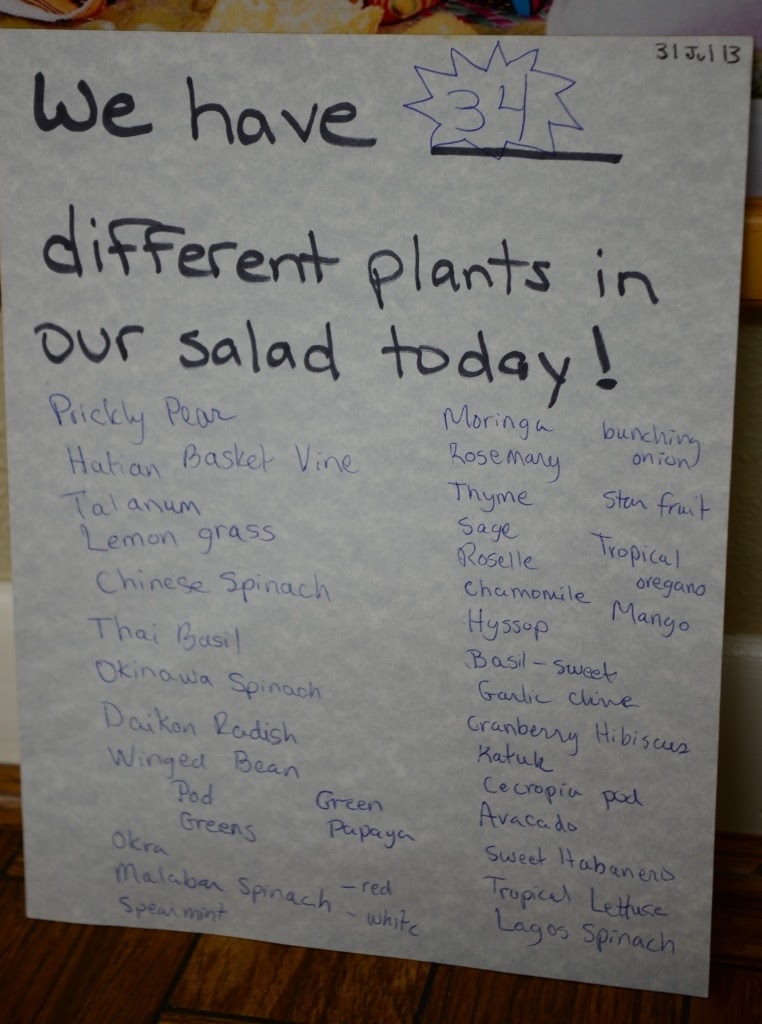 31 Jul 13
We have 34
different plants in
our salad today!
Prickly Pear
Hatian Basket Vine
Talanum
Lemon grass
Chinese Spinach
Thai Basil
Okinawa Spinach
Daikon Radish
Winged Bean
Pod
Greens
Green
Papaya
Okra
Malabar Spinach - red
- white
Spearmint
Moringa
Rosemary
Thyme
Sage
Roselle
Chamomile
Hyssop
Basil - sweet
Garlic chive
Cranberry Hibiscus
Katuk
Cecropia pod
Avacado
Sweet Habanero
Tropical Lettuse
Lagos Spinach
bunching
onion
Star fruit
Tropical
oregano
Mango